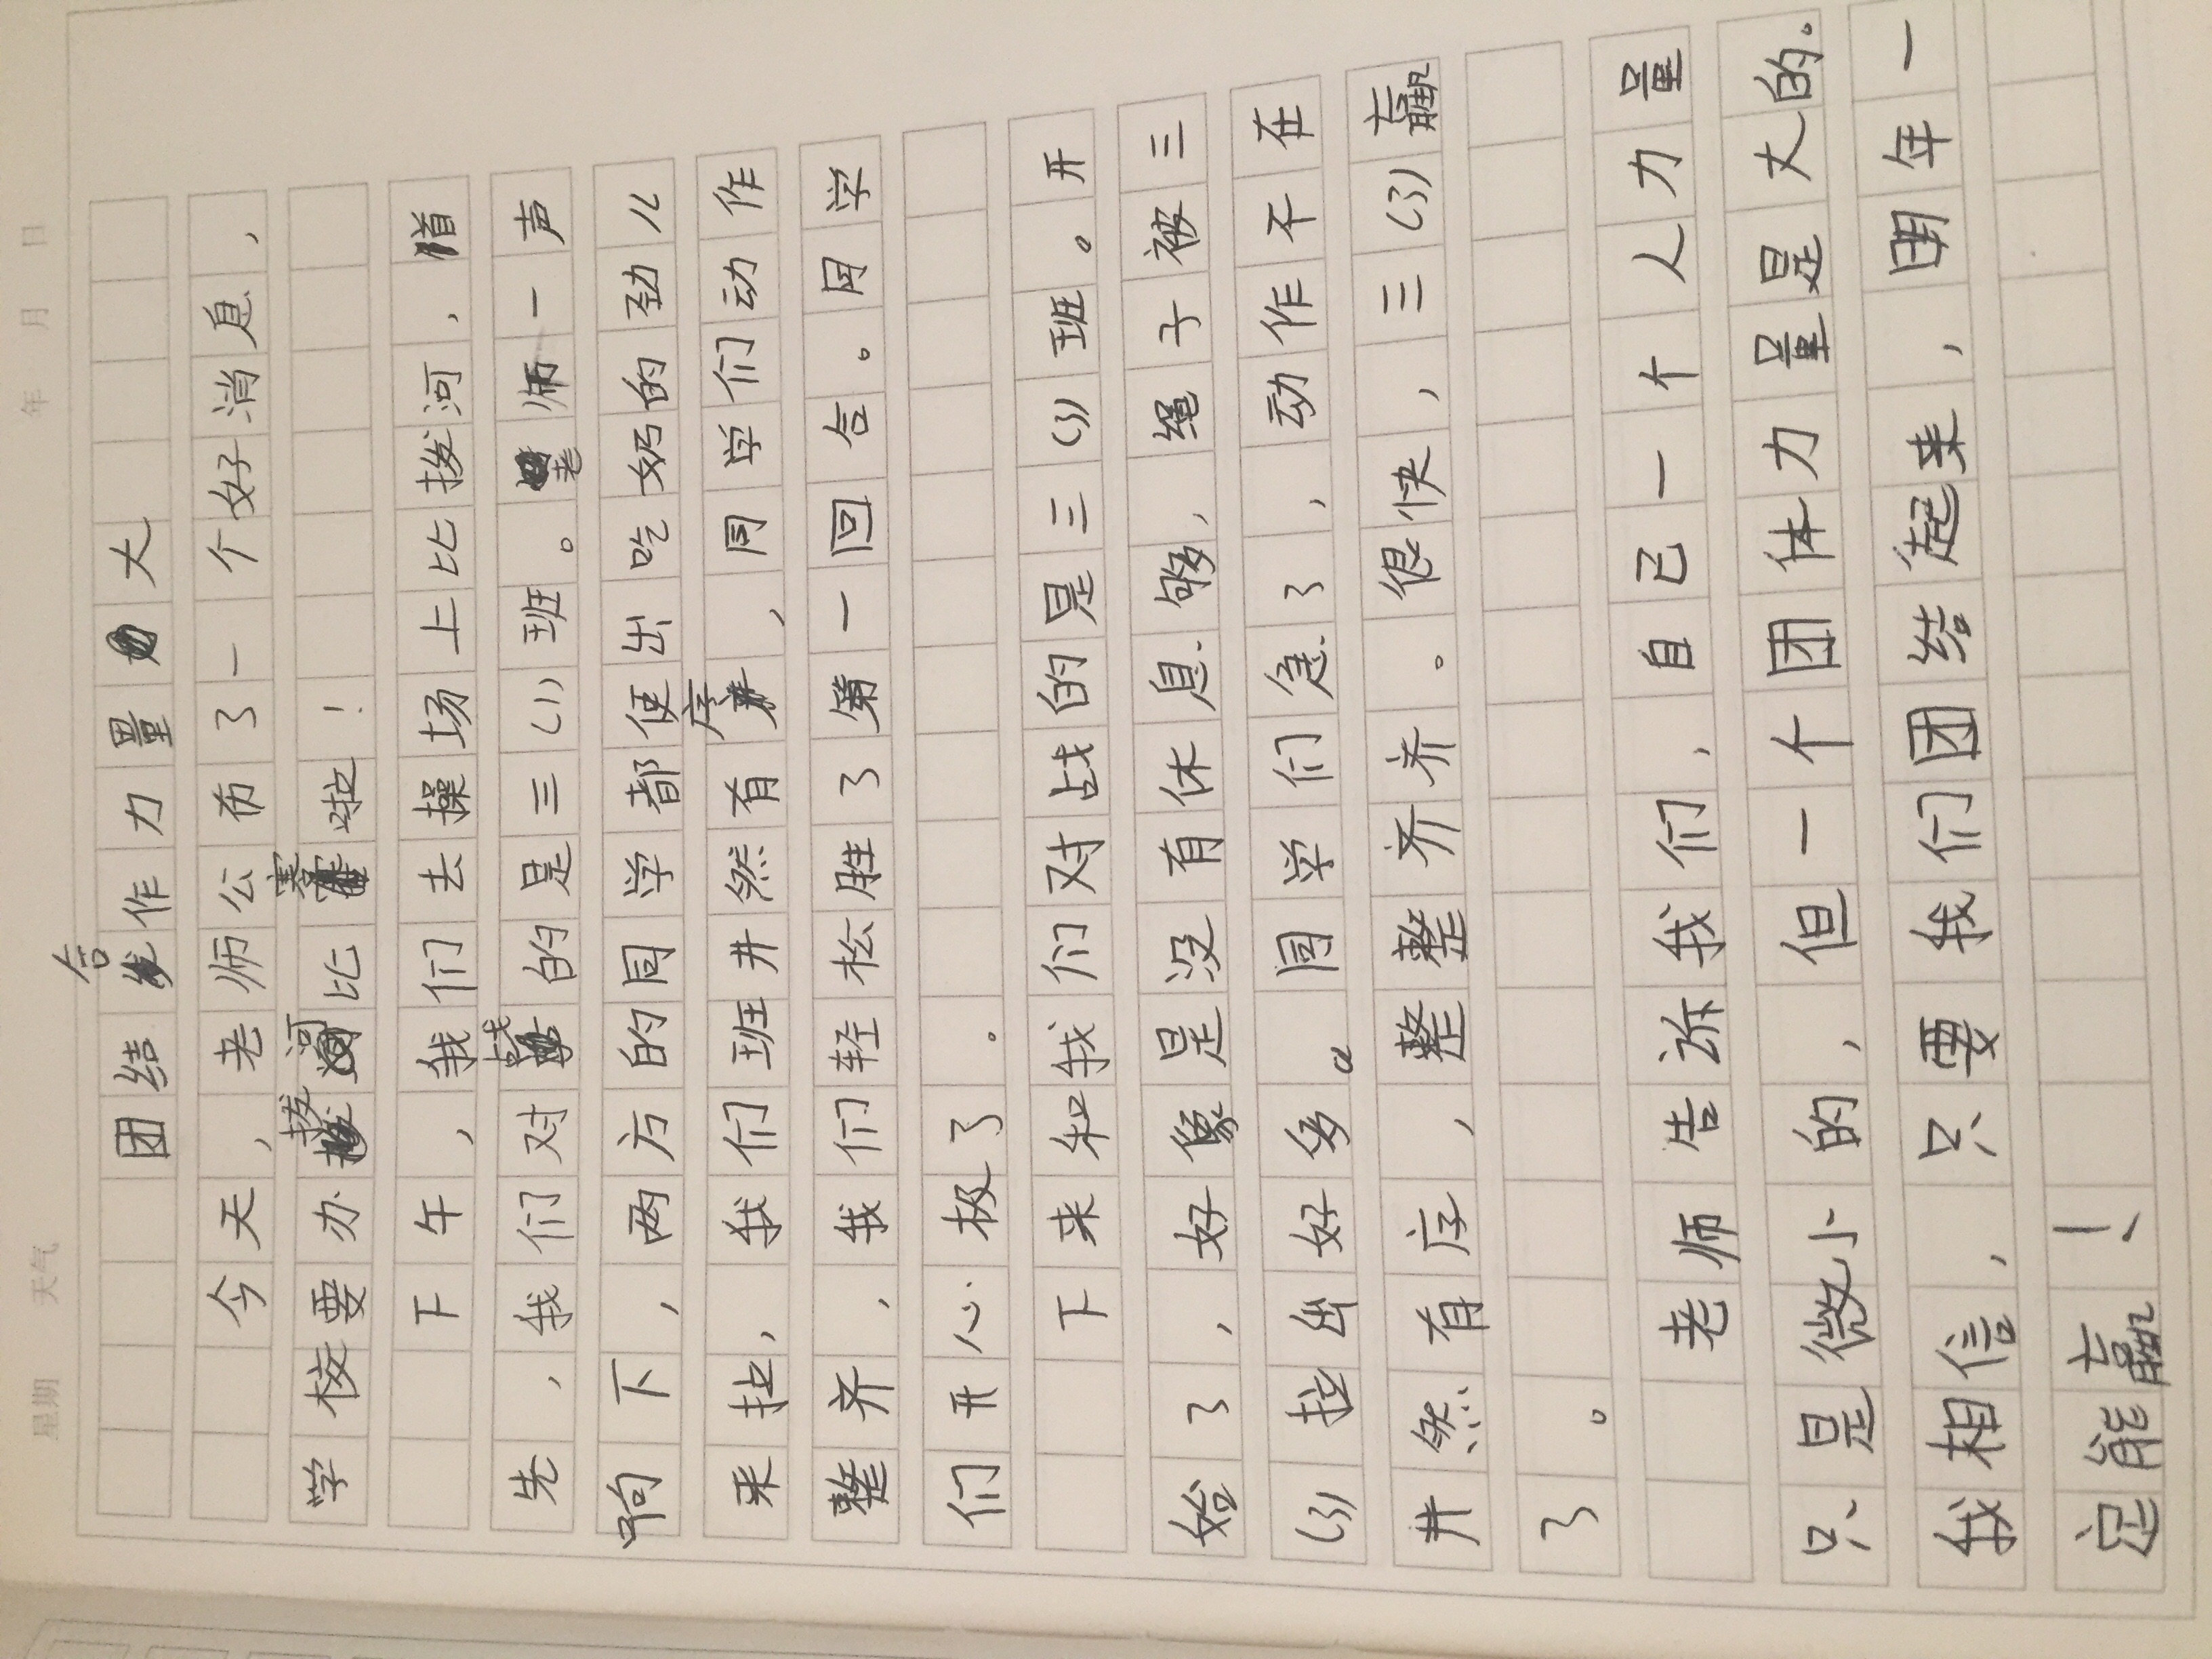 年 月 日
星期 天气
团结合作力量大
今天,老师公布了一个好消息,
学校要办拔河比赛啦!
下午,我们去操场上比拨河,首
先,我们对战的是三(1)班。老师一声
哨下,两方的同学都使出吃奶的劲儿
来拉,我们班井然有序,同学们动作
整齐,我们轻松胜了第一回合。同学
们开心极了.
下来和我们对战的是三(3)班。开
始了,好像是没有休息够,绳子被三
(3)拉出好多。同学们急了,动作不在
井然有序,整整齐齐。很快,三(3)赢
了。
老师告诉我们,自己一个人力量
只是微小的,但一个团体力量是大的.
我相信,只要我们团结起来,明年一
定能赢!